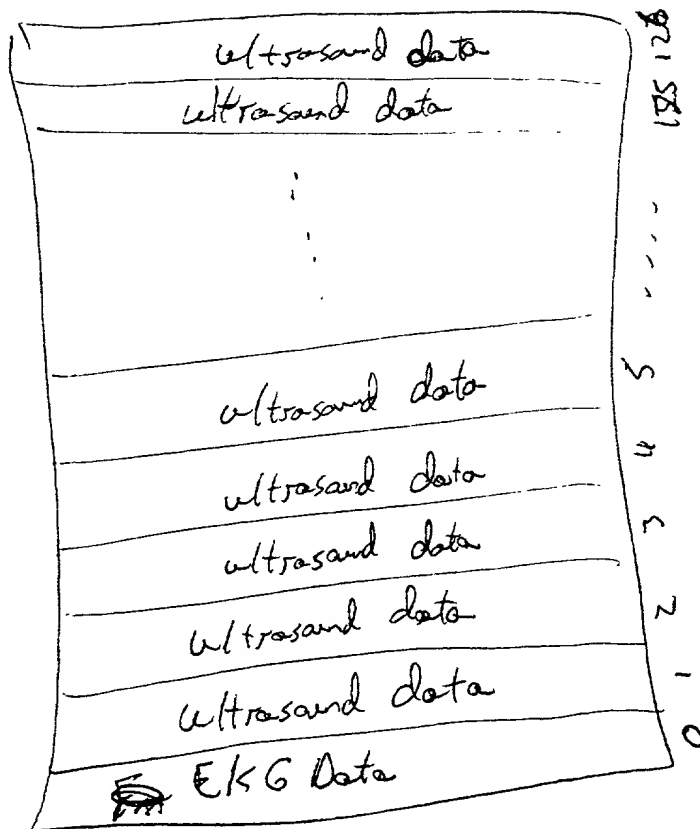 ultrasound data 128
ultrasound data
ultrasound data 5
ultrasound data 4
ultrasound data 3
ultrasound data 2
ultrasound data 1
EKG Data 0